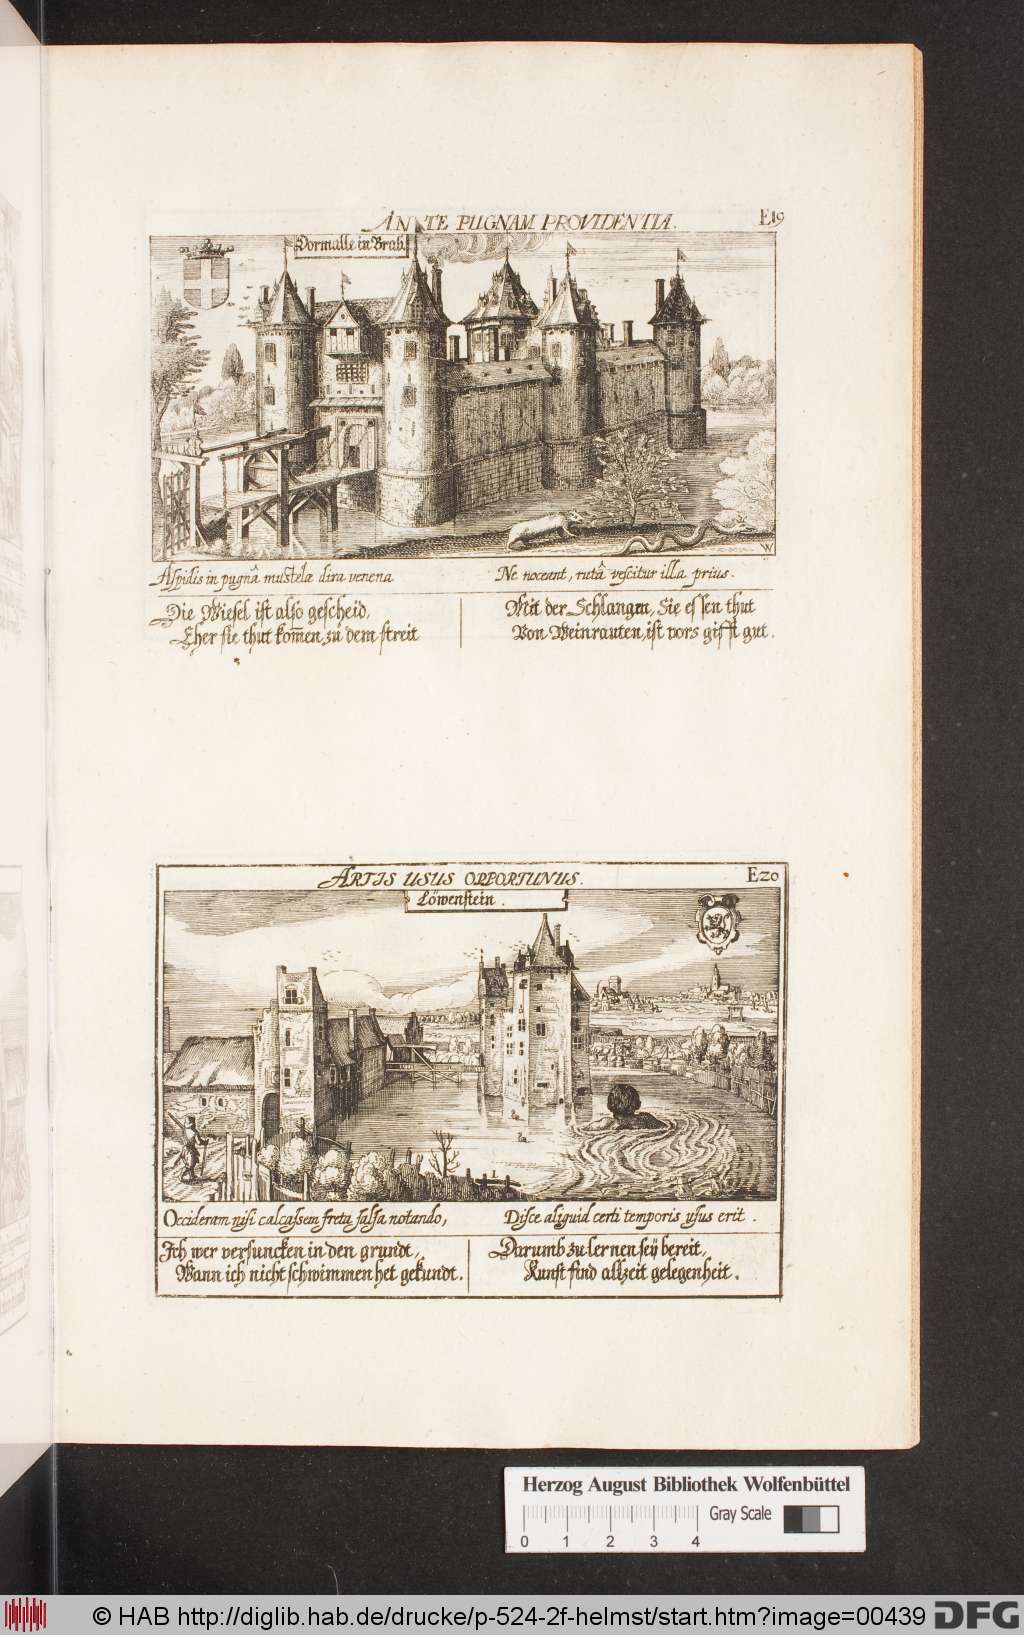 ANTE PUGNAM PROVIDENTIA.
E19
Dormalle in Brab.
W
Aspidis in pugnâ mustelæ dira venena
Ne noceant, rutâ vescitur illa prius.
Die Wiesel ist also gescheid,
Eher sie thut kom̄en zu dem streit
Mit der Schlangen, Sie essen thut
Von Weinrauten, ist vors gifft gut.
ARTIS USUS OPPORTUNUS.
E20
Löwenstein.
Occideram nisi calcassem freta salsa notando,
Disce aliquid certi temporis usus erit.
Ich wer versuncken in den grundt,
Wann ich nicht schwimmen het gekundt.
Darumb zu lernen seÿ bereit,
Kunst find allzeit gelegenheit.
Herzog August Bibliothek Wolfenbüttel
Gray Scale
0 1 2 3 4
© HAB http://diglib.hab.de/drucke/p-524-2f-helmst/start.htm?image=00439
DFG